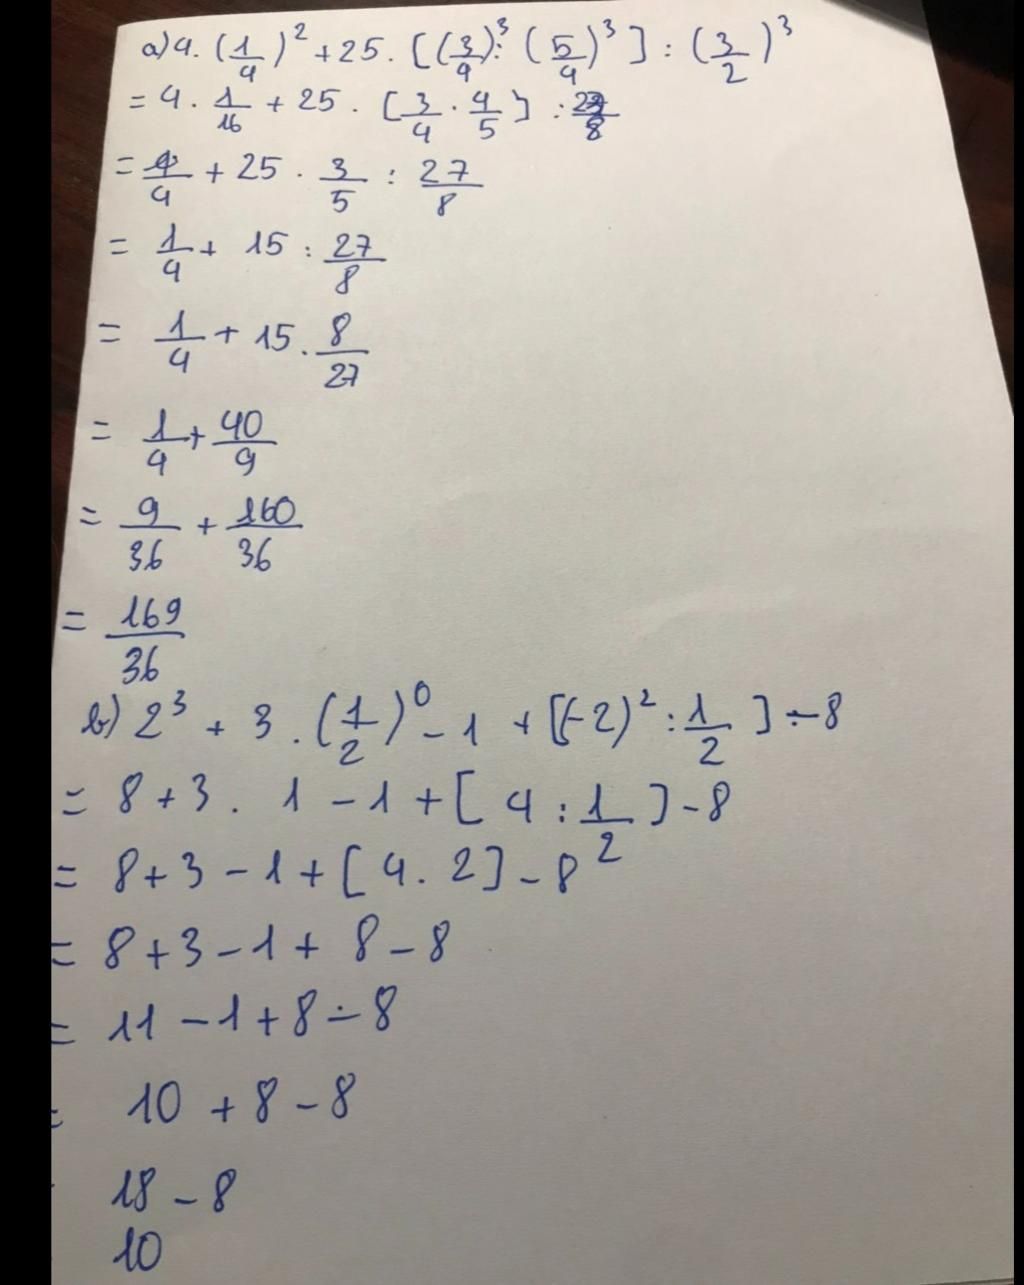 a) 4. (1/4)² + 25. [(3/4)³: (5/4)³] : (3/2)³
= 4. 1/16 + 25. [3/4 . 4/5] : 27/8
= 1/4 + 25. 3/5 : 27/8
= 1/4 + 15 : 27/8
= 1/4 + 15. 8/27
= 1/4 + 40/9
= 9/36 + 160/36
= 169/36
b) 2³ + 3. (1/2)⁰ - 1 + [(-2)² : 1/2] - 8
= 8 + 3. 1 - 1 + [4 : 1/2] - 8
= 8 + 3 - 1 + [4. 2] - 8
= 8 + 3 - 1 + 8 - 8
= 11 - 1 + 8 - 8
= 10 + 8 - 8
18 - 8
10